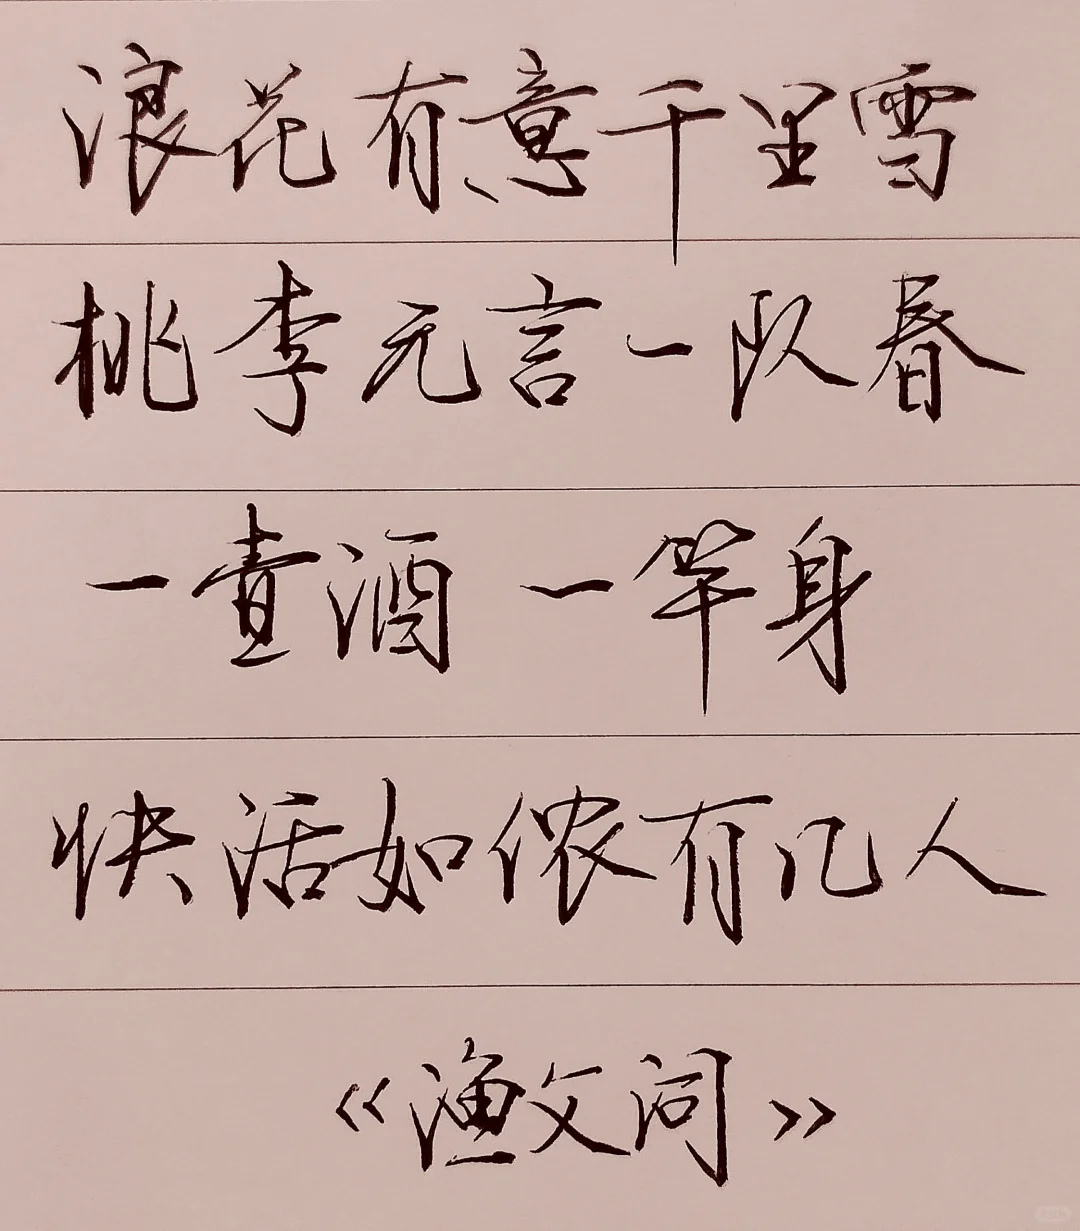 浪花有意千里雪
桃李无言一队春
一壶酒 一竿身
快活如侬有几人
《渔父词》